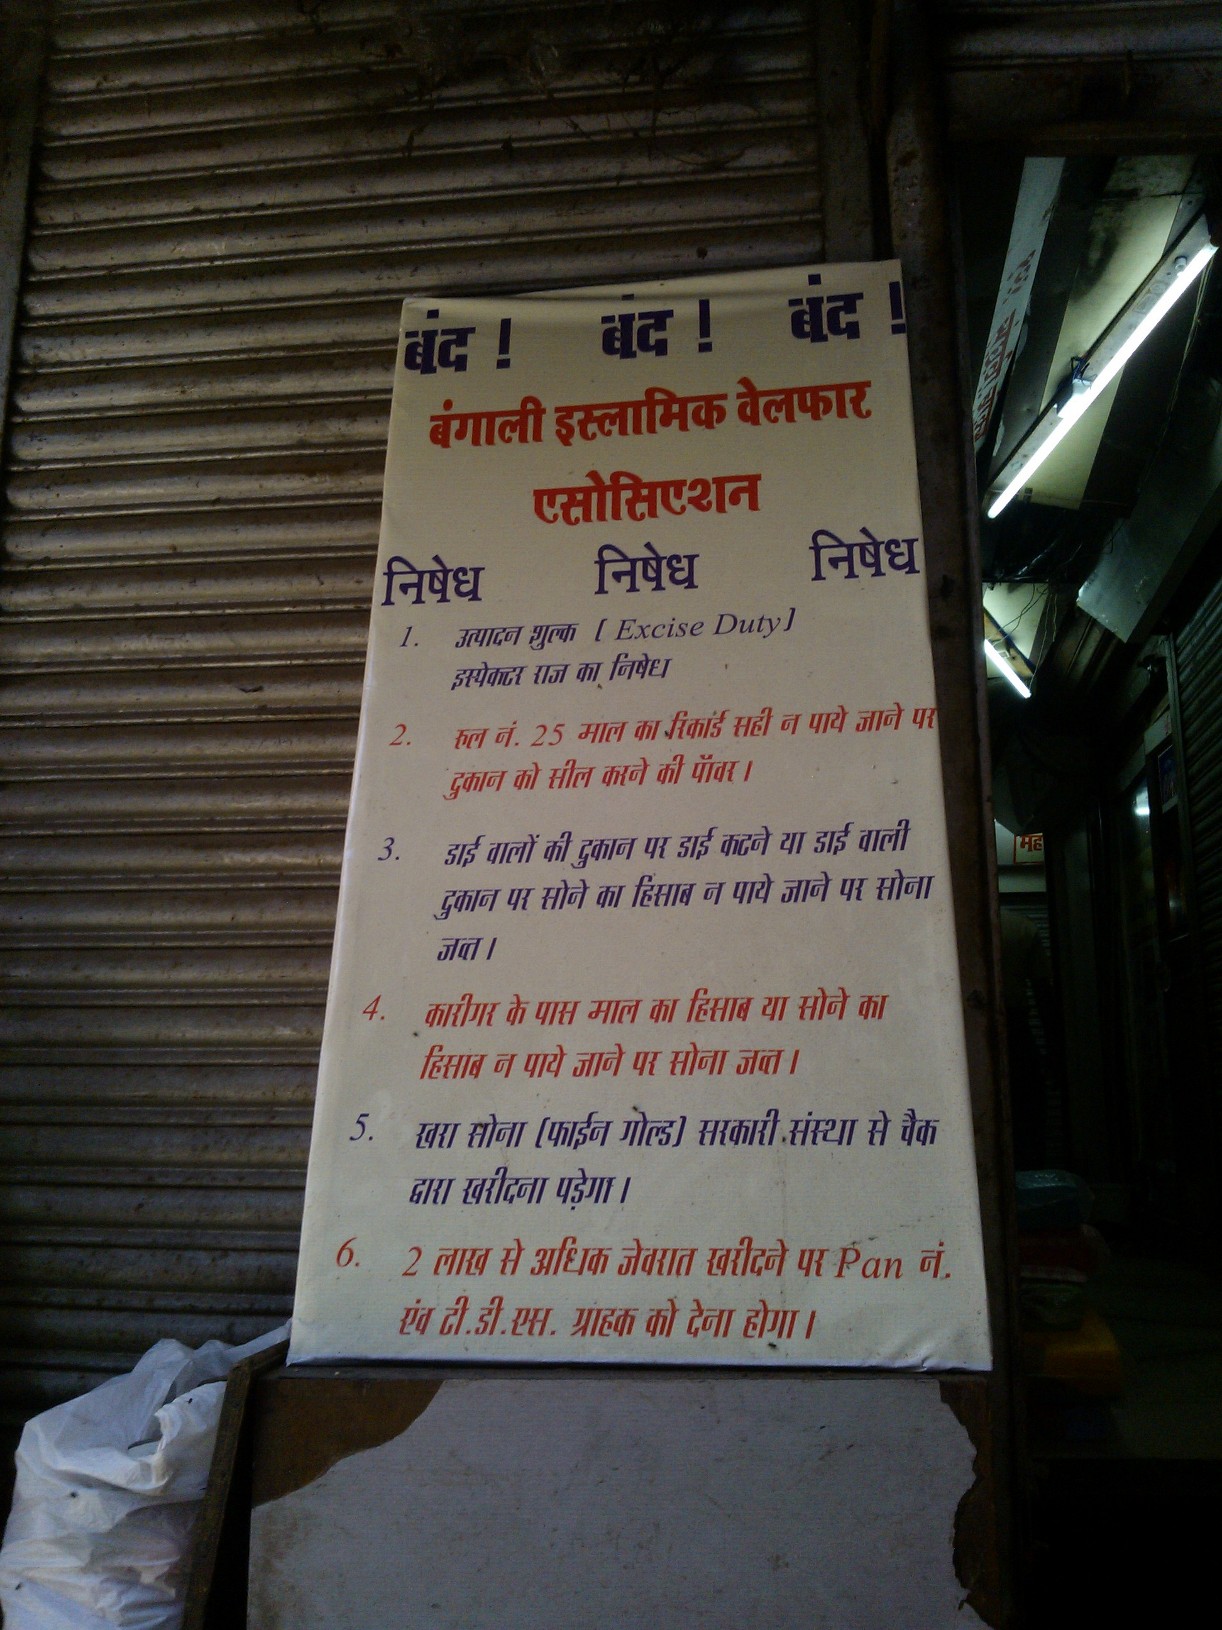 बंद ! बंद ! बंद !
बंगाली इस्लामिक वेलफार
एसोसिएशन
निषेध निषेध निषेध
1. उत्पादन शुल्क [ Excise Duty]
इस्पेकटर राज का निषेध
2. रुल नं. 25 माल का रिकार्ड सही न पाये जाने पर
दुकान को सील करने की पॅावर ।
3. डाई वालों की दुकान पर डाई कटने या डाई वाली
दुकान पर सोने का हिंसाब न पाये जाने पर सोना
जब्त ।
4. कारीगर के पास माल का हिसाब या सोने का
हिसाब न पाये जाने पर सोना जब्त ।
5. खरा सोना (फाईन गोल्ड) सरकारी संस्था से चैक
द्वारा खरीदना पड़ेगा ।
6. 2 लाख से अधिक जेवरात खरीदने पर Pan नं.
एंव टी.डी.एस. ग्राहक को देना होगा ।